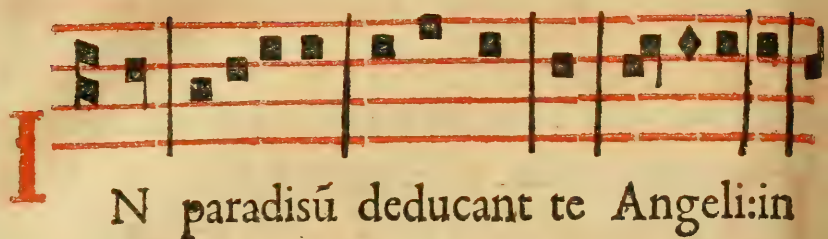 IN paradisū deducant te Angeli:in